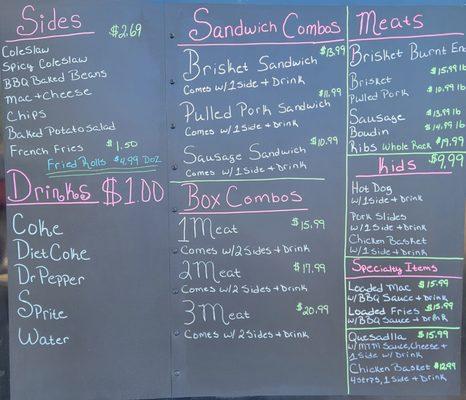 Sides
$2.69
Coleslaw
Spicy Coleslaw
BBQ Baked Beans
Mac + Cheese
Chips
Baked Potato Salad
French Fries $1.50
Fried Rolls $4.99 Doz
Drinks $1.00
Coke
Diet Coke
Dr Pepper
Sprite
Water
Sandwich Combos
Brisket Sandwich $13.99
Comes w/ 1 Side + Drink
Pulled Pork Sandwich $11.99
Comes w/ 1 Side + Drink
Sausage Sandwich $10.99
Comes w/ 1 Side + Drink
Box Combos
1 Meat $15.99
Comes w/ 2 Sides + Drink
2 Meat $17.99
Comes w/ 2 Sides + Drink
3 Meat $20.99
Comes w/ 2 Sides + Drink
Meats
Brisket Burnt En
Brisket $15.99 lb
Pulled Pork $10.99 lb
Sausage $13.99 lb
Boudin $14.99 lb
Ribs Whole Rack $19.99
Kids $9.99
Hot Dog
w/ 1 Side + Drink
Pork Slides
w/ 1 Side + Drink
Chicken Basket
w/ 1 Side + Drink
Specialty Items
Loaded Mac $15.99
w/ BBQ Sauce + Drink
Loaded Fries $15.99
w/ BBQ Sauce + Drink
Quesadilla $15.99
w/ MTM Sauce, Cheese +
1 Side w/ Drink
Chicken Basket $12.99
4 Strps, 1 Side + Drink